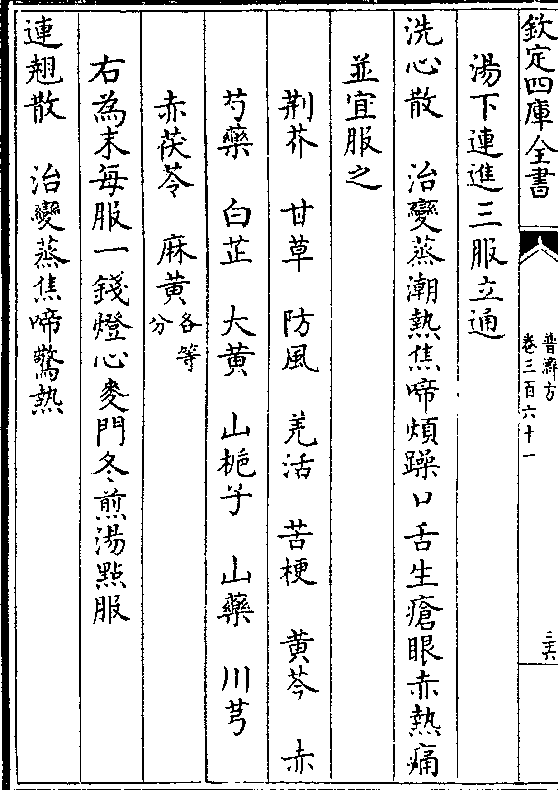 欽定四庫全書
普濟方
卷三百六十一
三六
湯下連進三服立通
洗心散　治變蒸潮熱焦啼煩躁口舌生瘡眼赤熱痛
並宜服之
荆芥　甘草　防風　羌活　苦梗　黄芩　赤
芍藥　白芷　大黄　山梔子　山藥　川芎
赤茯苓　麻黄各等分
右為末每服一錢燈心麥門冬煎湯點服
連翹散　治變蒸焦啼驚熱